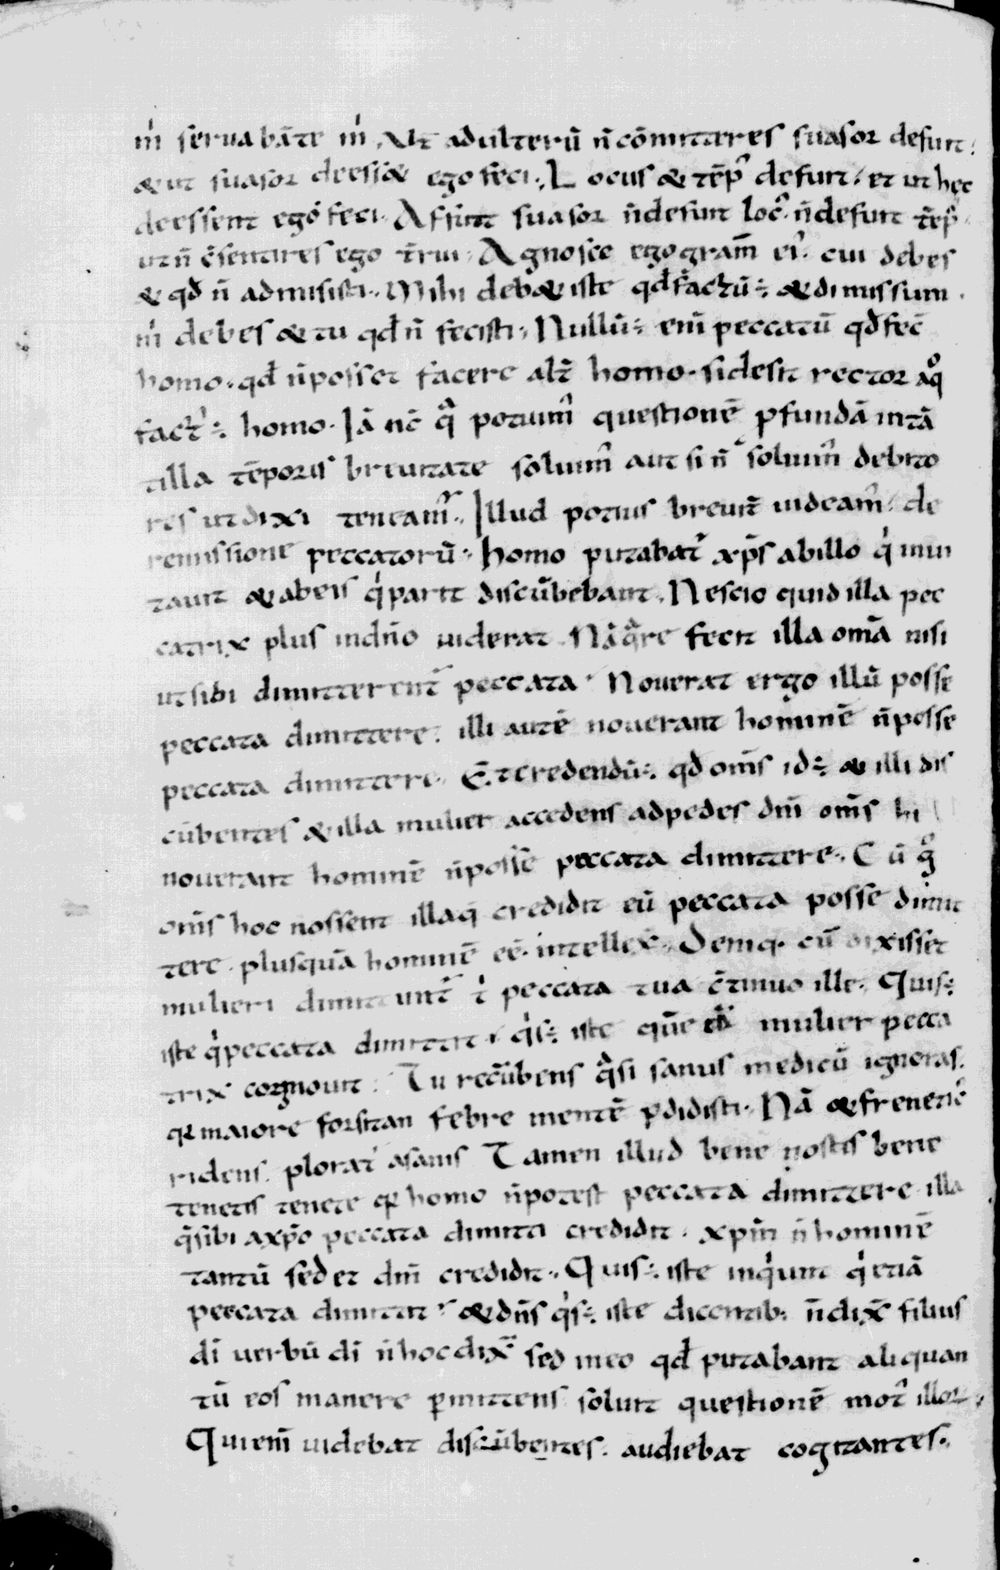 m̓ seruabāte m̓. Ut adulterū n̄ cōmitteres suasor defuit.
& ut suasor deess& ego feci. Locus & tēp᷒ defuit. et ut hec
deessent ego feci. Affuit suasor n̄ defuit loc᷒. n̄ defuit tēp᷒.
ut n̄ c̄sentires ego t̄rui. Agnosce ergo gram̄ ei᷒. cui debes
& qđ n̄ admisisti. Mihi deb& iste qđ factū ÷ & dimissum.
m̓ debes & tu qđ n̄ fecisti. Nullū ÷ eni̅ peccatū qđ fec̄
homo. qđ n̄ posset facere alt̄ homo. si desit rector a q̊
fact᷒ ÷ homo. Iā nc̄ qa potuim᷒ questionē ꝓfundā in tā
tilla tēporis breuitate soluim᷒ aut si n̄ soluim᷒ debito
res ut dixi teneam᷒. Illud potius breuit̄ uideam᷒. de
remissione peccatorū. homo putabat᷒ xp̄s ab illo qi inui
tauit & ab eis qi pariť discūbebant. Nescio quid illa pec
catrix plus in dn̄o uiderat. Nā qare fecit illa om̄a nisi
ut sibi dimitterent᷒ peccata. Nouerat ergo illū posse
peccata dimittere. illi autē nouerant hominē n̄ posse
peccata dimittere. Et credendū ÷. qđ om̄s id ÷ & illi dis
cūbentes & illa mulier accedens ad pedes dn̄i om̄s hi
nouerant hominē n̄ posse peccata dimittere. Cū g̊
om̄s hoc nossent illa q̄ credidit eū peccata posse dimit
tere. plusquā hominē eē. intellex̄. Deniq. cū dixisset
mulieri dimittunt᷒ ti peccata tua c̄tinuo ille. Quis ÷
iste qi peccata dimittit. qis ÷ iste quē mulier pecca
trix cognouit. Tu recūbens qasi sanus medicū ignoras.
qꝛ maiore forsitan febre mentē ꝑdidisti. Nā & frenetic᷒
ridens. plorat᷒ a sanis. Tamen illud bene nostis bene
tenetis tenete qꝛ homo n̄ potest peccata dimittere. illa
q̄ sibi a xp̄o peccata dimitti credidit. xpm̄ n̄ hominē
tantū sed et dm̄ credidit. Quis ÷ iste inqiunt qi etiā
peccata dimittit. & dn̄s qis ÷ iste dicentib; n̄ dix̄ filius
di̅ uerbū di̅ n̄ hoc dix̄ sed in eo qđ putabant aliquan
tū eos manere ꝑmittens soluit questionē mot᷒ illoꝝ.
Qui eni̅ uidebat discūbentes. audiebat cogitantes.